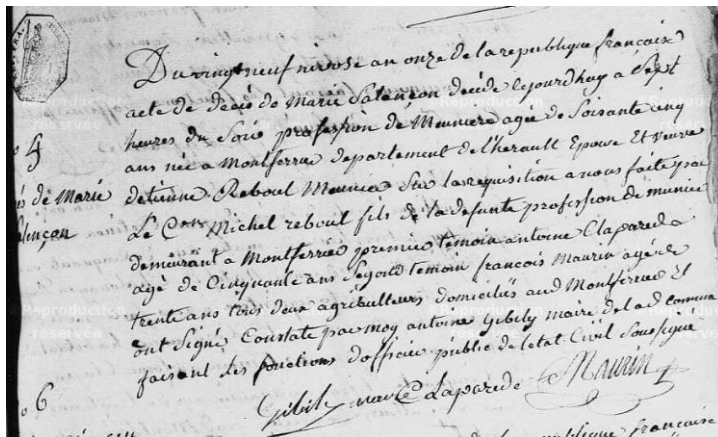 Du vingt neuf nivose an onze de la republique française
acte de décés de Marie Salençon décéde lejourdhuy a Sept
heures du Soir profession de Meuniere agée de Soisante cinq
ans née a Montferrier departement de lherault Epouse Et veuve
detienne Reboul Meunier Sur la requisition a nous faite par
Le Cen Michel reboul fils de la defunte profession de munier
demeurant a Montferrier premier temoin antoine Claparede
agé de Cinquante ans Segond temoin françois Maurin agé de
trente ans tous deux agriculteurs domiciliés aud Montferrier Et
ont Signé Constaté par moy antoine gibily maire de lad commune
faisant les fonctions dofficier public de letat Civil Soussigné
Gibily maire Claparede Maurin
4
de Marie
6
republique française